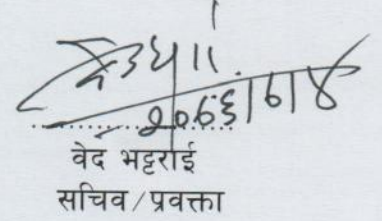 २०६६।७।४
वेद भट्टराई
सचिव/प्रवक्ता